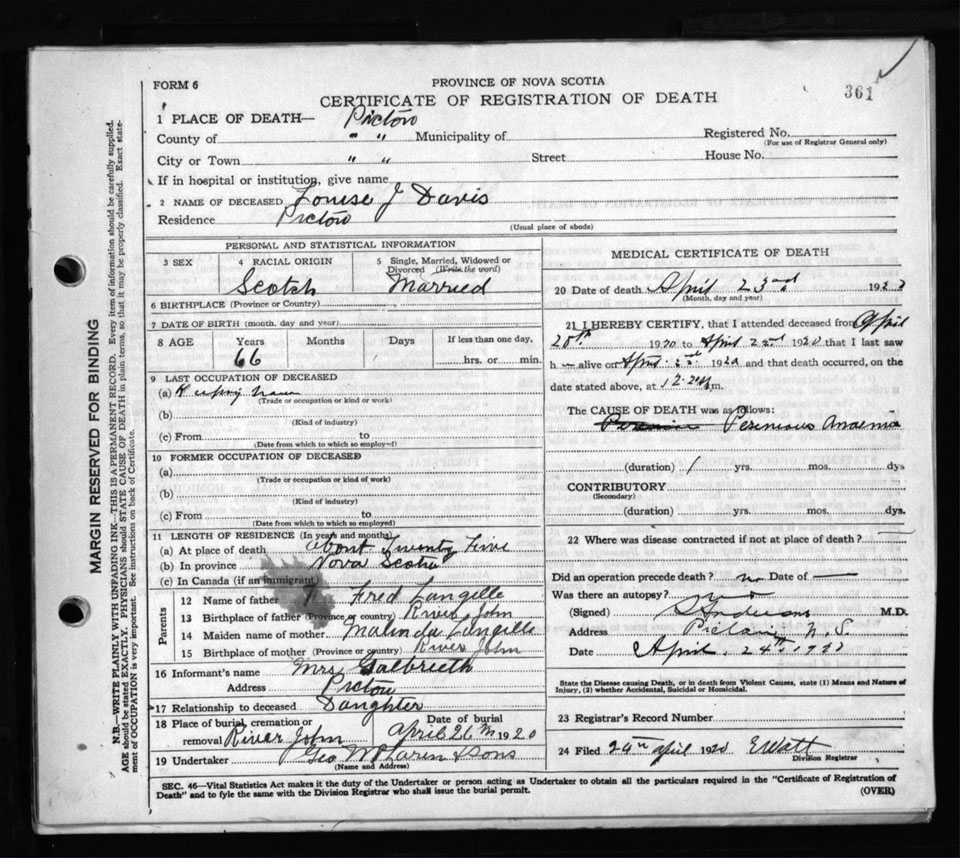 361
FORM 6
PROVINCE OF NOVA SCOTIA
CERTIFICATE OF REGISTRATION OF DEATH
1 PLACE OF DEATH— Pictou
County of " " Municipality of Registered No.
(For use of Registrar General only)
City or Town " " Street House No.
If in hospital or institution, give name
2 NAME OF DECEASED Louise J Davis
Residence Pictou
(Usual place of abode)
PERSONAL AND STATISTICAL INFORMATION
3 SEX
4 RACIAL ORIGIN
Scotch
5 Single, Married, Widowed or Divorced (Write the word)
Married
6 BIRTHPLACE (Province or Country)
7 DATE OF BIRTH (month, day and year)
8 AGE Years Months Days If less than one day,
66 hrs. or min.
9 LAST OCCUPATION OF DECEASED
(a) Keeping house
(Trade or occupation or kind or work)
(b)
(Kind of industry)
(c) From to
(Date from which to which so employed)
10 FORMER OCCUPATION OF DECEASED
(a)
(Trade or occupation or kind of work)
(b)
(Kind of industry)
(c) From to
(Date from which to which so employed)
11 LENGTH OF RESIDENCE (In years and months)
(a) At place of death about Twenty Five
(b) In province Nova Scotia
(c) In Canada (if an immigrant)
Parents
12 Name of father Fred Langille
13 Birthplace of father (Province or country) River John
14 Maiden name of mother Malinda Langille
15 Birthplace of mother (Province or country) River John
16 Informant's name Mrs Galbreeth
Address Pictou
17 Relationship to deceased Daughter
18 Place of burial, cremation or removal River John
Date of burial April 26th 1920
19 Undertaker Geo McLaren & Sons
(Name and Address)
MEDICAL CERTIFICATE OF DEATH
20 Date of death April 23rd 192
(Month, day and year)
21 I HEREBY CERTIFY, that I attended deceased from April
20th 1920 to April 22nd 1920 that I last saw
h alive on April 1920 and that death occurred, on the
date stated above, at 12.20 m.
The CAUSE OF DEATH was as follows:
Pernicious Anaemia
(duration) 1 yrs. mos. dys
CONTRIBUTORY
(Secondary)
(duration) yrs. mos. dys.
22 Where was disease contracted if not at place of death? —
Did an operation precede death? no Date of —
Was there an autopsy? no
(Signed) M.D.
Address Pictou N.S.
Date April 24th 192
State the Disease causing Death, or in death from Violent Causes, state (1) Means and Nature of
Injury, (2) whether Accidental, Suicidal or Homicidal.
23 Registrar's Record Number
24 Filed 24th April 1920
Division Registrar
SEC. 46—Vital Statistics Act makes it the duty of the Undertaker or person acting as Undertaker to obtain all the particulars required in the "Certificate of Registration of
Death" and to fyle the same with the Division Registrar who shall issue the burial permit.
(OVER)
MARGIN RESERVED FOR BINDING
N.B.—WRITE PLAINLY WITH UNFADING INK—THIS IS A PERMANENT RECORD. Every item of information should be carefully supplied.
AGE should be stated EXACTLY. PHYSICIANS should STATE CAUSE OF DEATH in plain terms, so that it may be properly classified. Exact statement of OCCUPATION is very important. See instructions on back of Certificate.